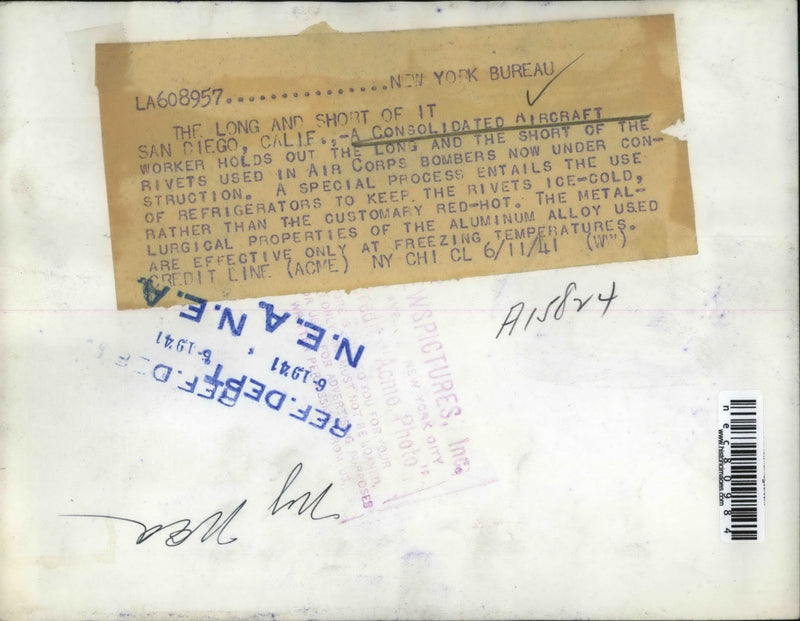 LA608957................NEW YORK BUREAU
THE LONG AND SHORT OF IT
SAN DIEGO, CALIF.,-A CONSOLIDATED AIRCRAFT
WORKER HOLDS OUT THE LONG AND THE SHORT OF THE
RIVETS USED IN AIR CORPS BOMBERS NOW UNDER CON-
STRUCTION. A SPECIAL PROCESS ENTAILS THE USE
OF REFRIGERATORS TO KEEP THE RIVETS ICE-COLD,
RATHER THAN THE CUSTOMARY RED-HOT. THE METAL-
LURGICAL PROPERTIES OF THE ALUMINUM ALLOY USED
ARE EFFECTIVE ONLY AT FREEZING TEMPERATURES.
CREDIT LINE (ACME) NY CHI CL 6/11/41 (WW).
A15824
N.E.A. N.E.A.
6-1941 6-1941
REF. DEPT. REF. DEP
NEWSPICTURES, Inc.
NEW YORK CITY
Acme Photo
YOU FOR YOUR
MUST NOT BE LOANED,
FOR ADVERTISING PURPOSES
PERMISSION FROM US.
NEA
nec80984
www.historicimages.com